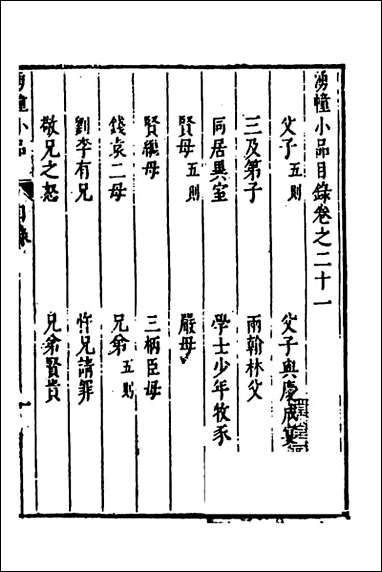 湧幢小品目錄卷之二十一
父子五則
父子與慶成宴
三及第子
兩翰林父
同居異室
學士少年牧豕
賢母五則
嚴母
賢繼母
三柄臣母
錢袁二母
兄弟五則
劉李有兄
忤兄請罪
敬兄之恕
兄弟賢貴
湧幢小品
目錄
一